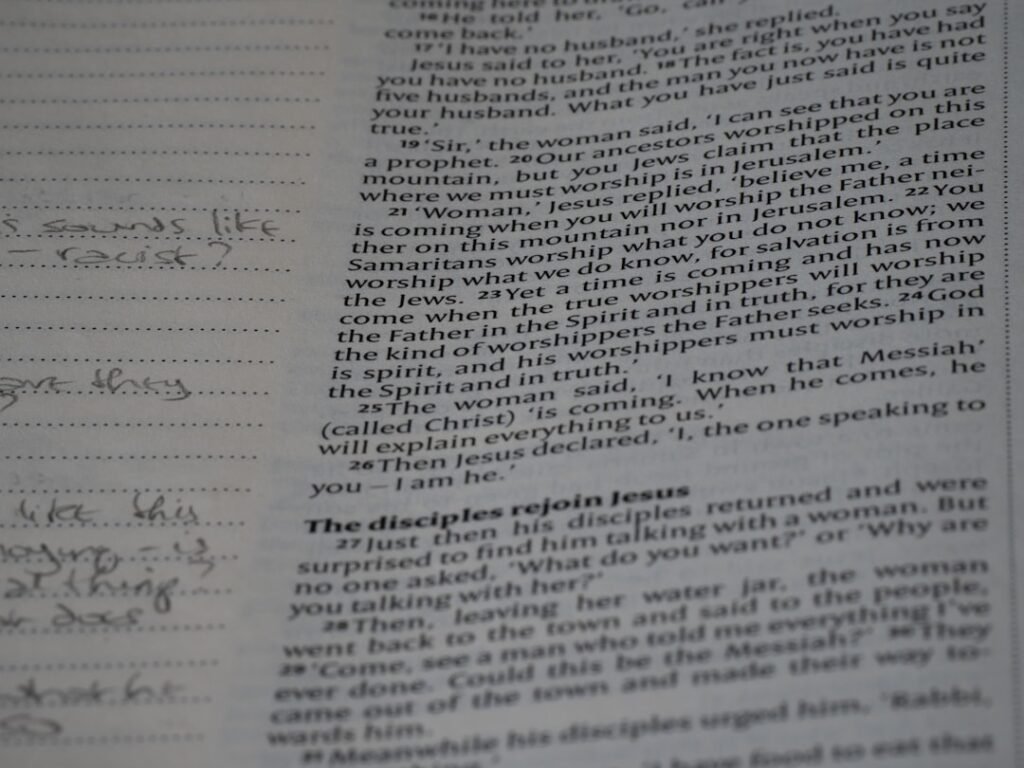 s sounds like
– racist?
they
like this
at thing
does
coming here to
16 He told her, 'Go,
come back.'
17 'I have no husband,' she replied.
Jesus said to her, 'You are right when you say
you have no husband. 18 The fact is, you have had
five husbands, and the man you now have is not
your husband. What you have just said is quite
true.'
19 'Sir,' the woman said, 'I can see that you are
a prophet. 20 Our ancestors worshipped on this
mountain, but you Jews claim that the place
where we must worship is in Jerusalem.'
21 'Woman,' Jesus replied, 'believe me, a time
is coming when you will worship the Father nei-
ther on this mountain nor in Jerusalem. 22 You
Samaritans worship what you do not know; we
worship what we do know, for salvation is from
the Jews. 23 Yet a time is coming and has now
come when the true worshippers will worship
the Father in the Spirit and in truth, for they are
the kind of worshippers the Father seeks. 24 God
is spirit, and his worshippers must worship in
the Spirit and in truth.'
25 The woman said, 'I know that Messiah'
(called Christ) 'is coming. When he comes, he
will explain everything to us.'
26 Then Jesus declared, 'I, the one speaking to
you – I am he.'
The disciples rejoin Jesus
27 Just then his disciples returned and were
surprised to find him talking with a woman. But
no one asked, 'What do you want?' or 'Why are
you talking with her?'
28 Then, leaving her water jar, the woman
went back to the town and said to the people,
29 'Come, see a man who told me everything I've
ever done. Could this be the Messiah?' 30 They
came out of the town and made their way to-
wards him.
31 Meanwhile his disciples urged him, 'Rabbi,
have food to eat that